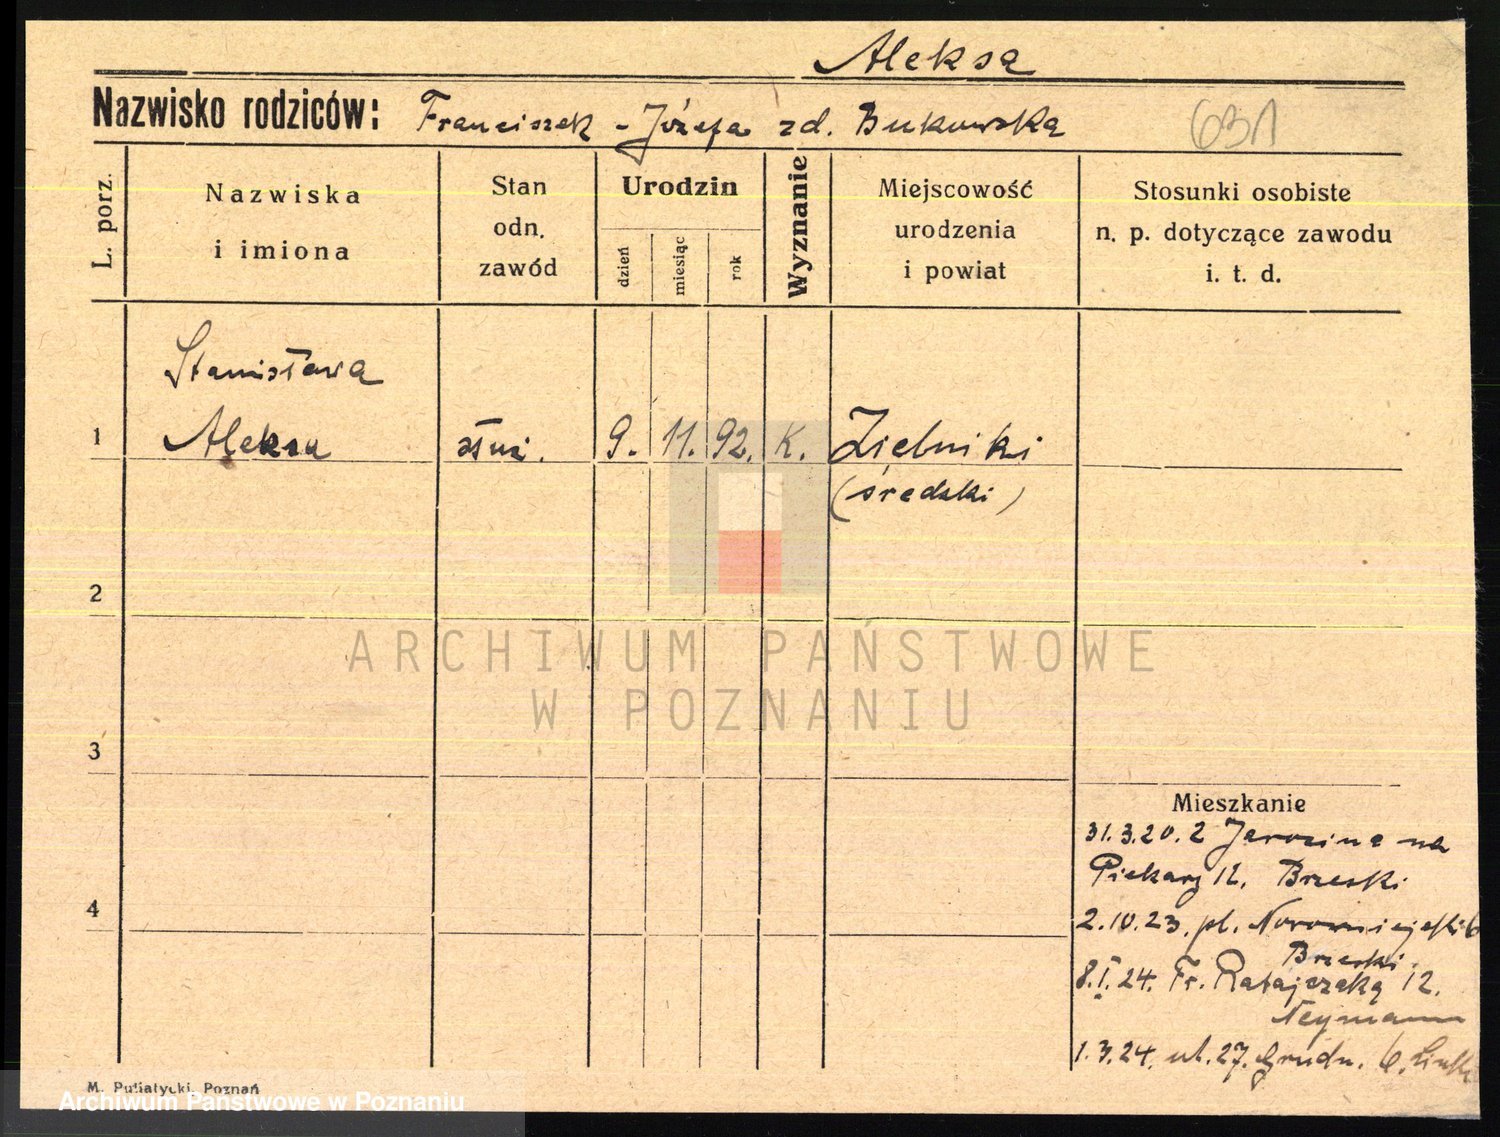 Aleksa
Nazwisko rodziców: Franciszek - Józefa zd. Bukowska 631
L. porz.
Nazwiska
i imiona
Stan
odn.
zawód
Urodzin
dzień
miesiąc
rok
Wyznanie
Miejscowość
urodzenia
i powiat
Stosunki osobiste
n. p. dotyczące zawodu
i. t. d.
Stanisława
1 Aleksa służ. 9. 11. 92. K. Zielniki
(średzki)
2
3
4
ARCHIWUM PAŃSTWOWE
W POZNANIU
Mieszkanie
31.3.20. z Jarocina na
Piekary 12. Brzeski
2.10.23. pl. Nowomiejski 6
Brzeski.
8.I.24. Fr. Ratajczaka 12.
Neymann
1.3.24. ul. 27. Grudn. 6.
M. Putiatycki, Poznań
Archiwum Państwowe w Poznaniu